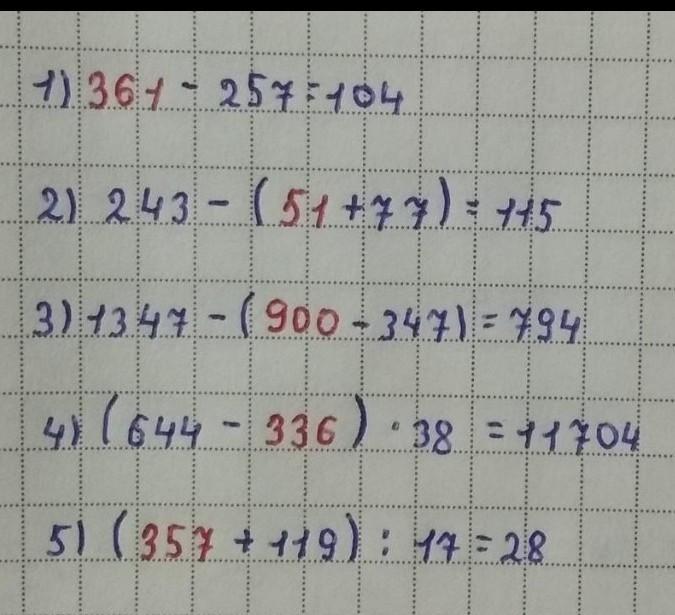 1) 361 - 257 = 104
2) 243 - (51 + 77) = 115
3) 1347 - (900 - 347) = 794
4) (644 - 336) · 38 = 11704
5) (357 + 119) : 17 = 28